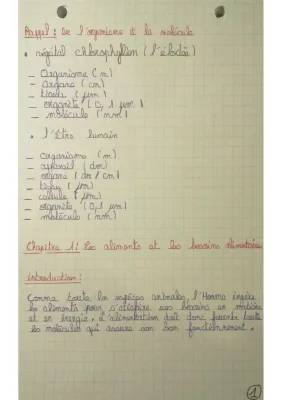 Rappel : De l'organisme à la molécule
• végétal chlorophyllien (l'élodée)
– Organisme (m)
– Organe (cm)
– tissu (µm)
– organite (0,1 µm)
– molécule (nm)
• l'être humain
– organisme (m)
– appareil (dm)
– organe (dm / cm)
– tissu (µm)
– cellule (µm)
– organite (0,1 µm)
– molécule (nm)
Chapitre 1 : Les aliments et les besoins alimentaires
Introduction :
Comme toute les espèces animales, l'Homme ingère
les aliments pour satisfaire ses besoins en matière
et en énergie. L'alimentation doit donc fournir toute
les molécules qui assure son bon fonctionnement.
1